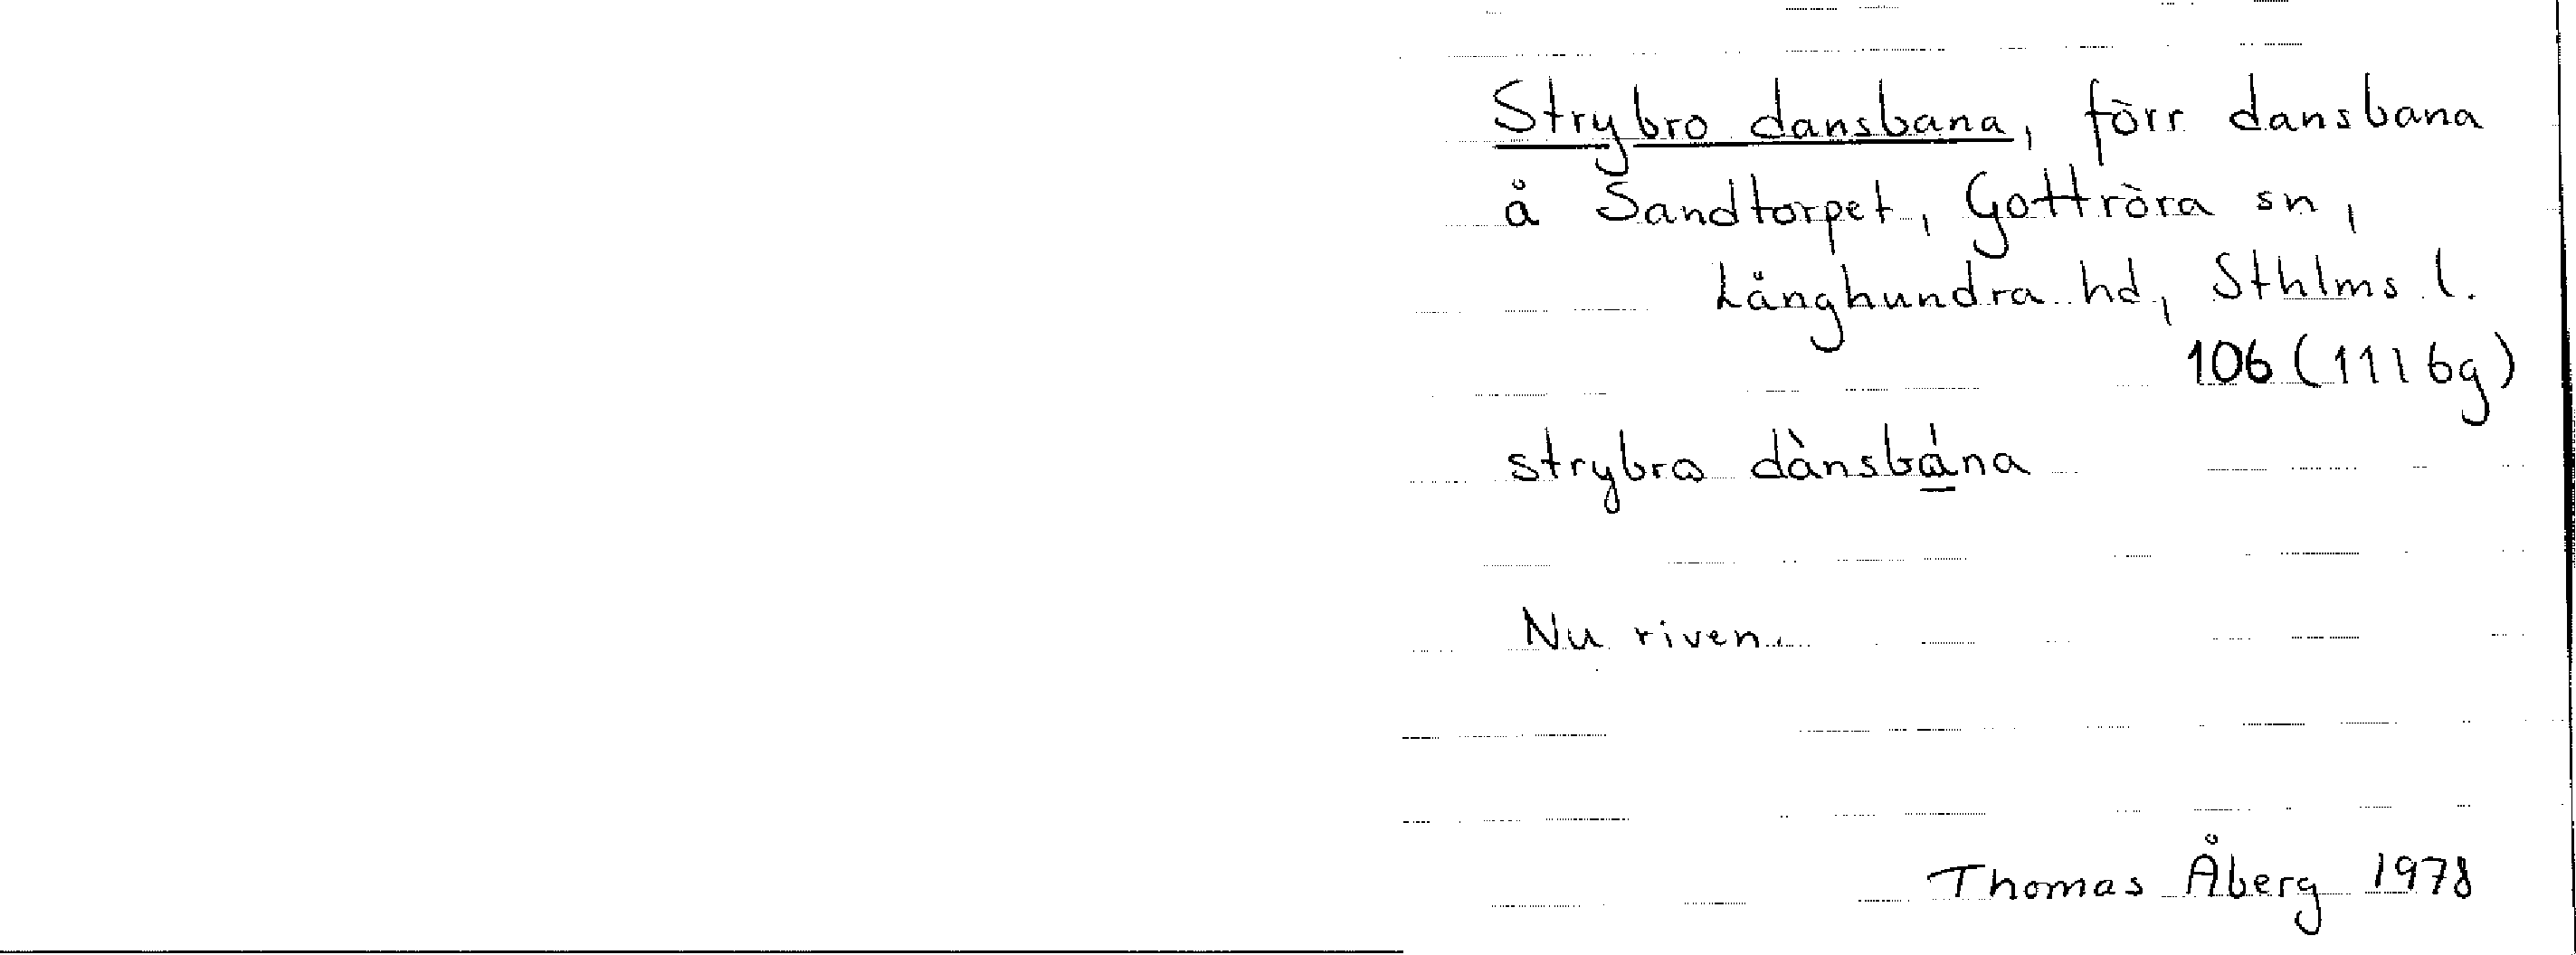 Strybro dansbana, förr dansbana
å Sandtorpet, Gottröra sn,
Långhundra hd, Sthlms l.
106 (11I 6g)
strybrω dànsbána
Nu riven.
Thomas Åberg 1978